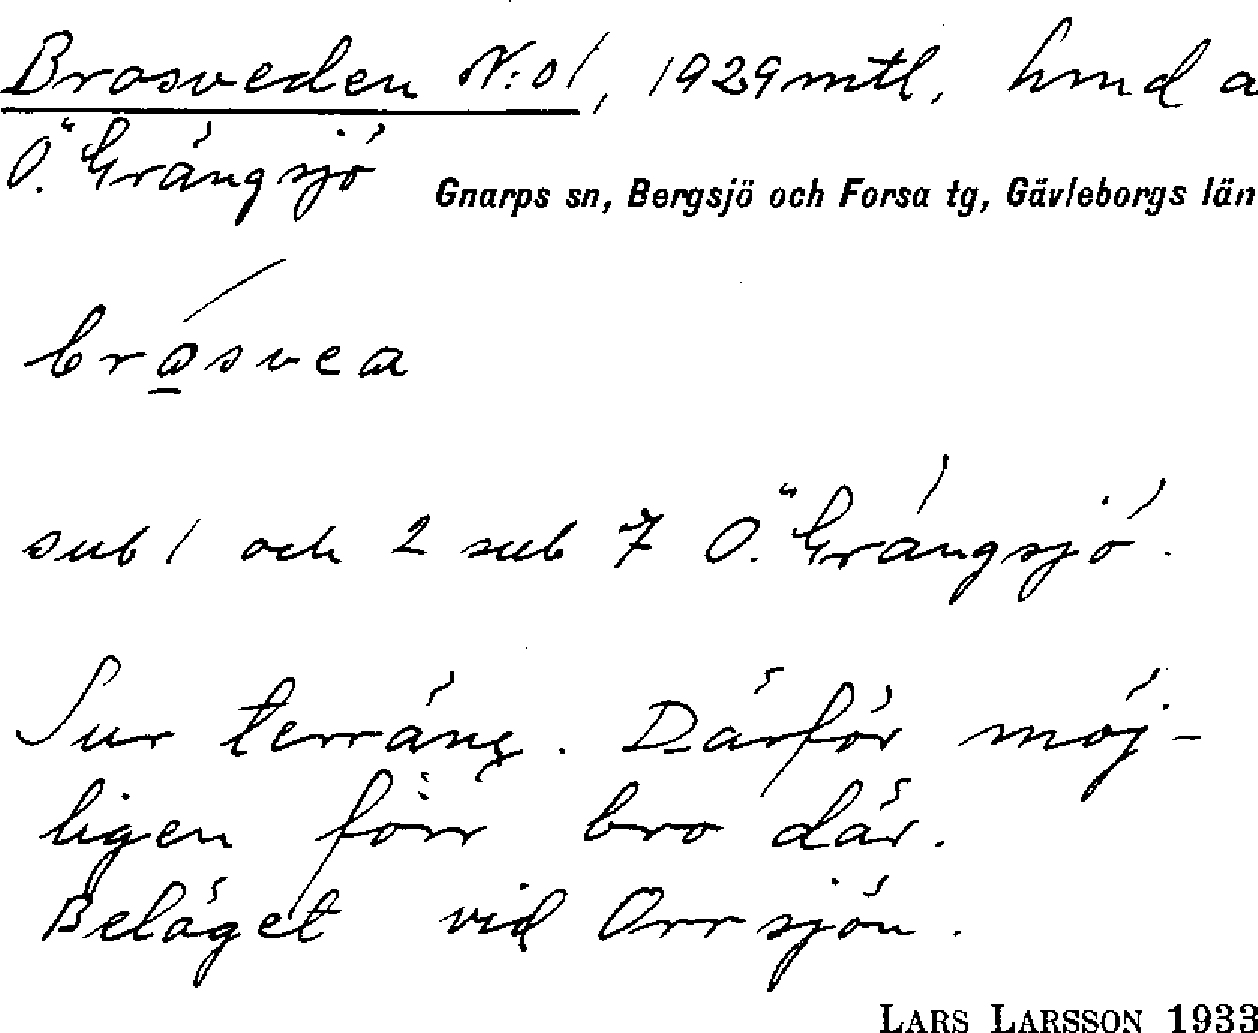 Brosveden N:o 1, 1929 mtl, hmd a
Ö. Grängsjö
Gnarps sn, Bergsjö och Forsa tg, Gävleborgs län
brosvea
sub 1 och 2 sub 7 Ö. Grängsjö.
Sur terräng. Därför möj-
ligen förr bro där.
Beläget vid Orrsjön.
LARS LARSSON 1933